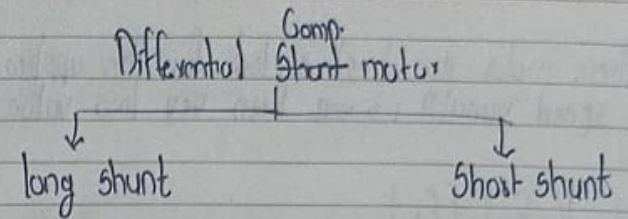 Comp.
Differential Short motor
long shunt
Short shunt